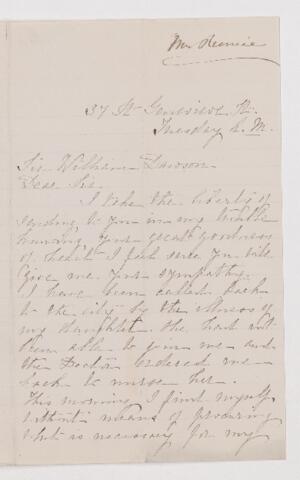 37 St Genevieve St.
Tuesday A.M.
Sir William Dawson
Dear Sir.
I take the liberty of
sending to you in my trouble
knowing your great goodness
of heart I feel sure you will
give me your sympathy.
I have been called back
to the city by the illness of
my daughter. She had not
been able to join me and
the Doctor ordered me
back to nurse her.
This morning I find myself
without means of procuring
what is necessary for my